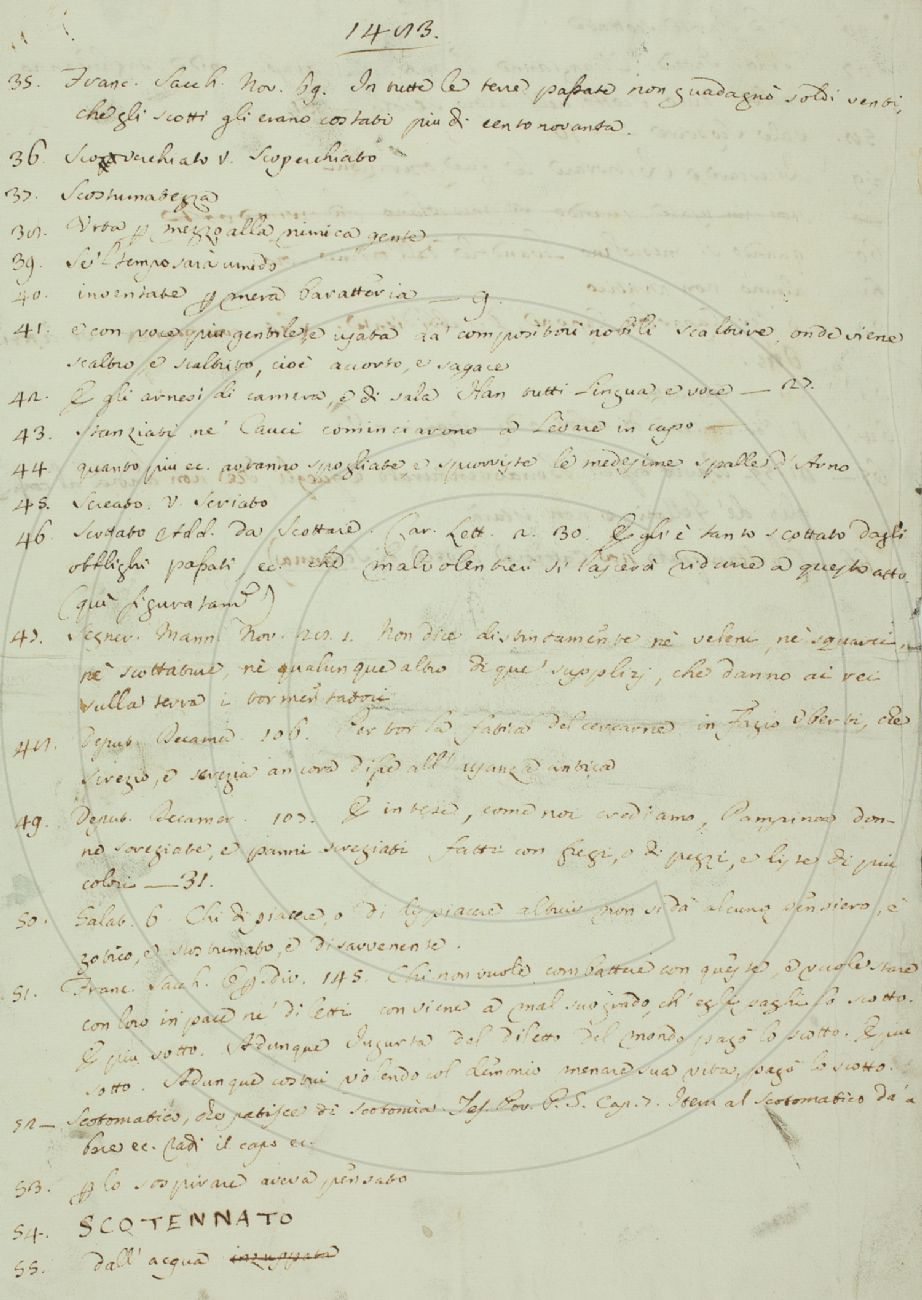 1483.
35. Franc. Sacch. Nov. 69. In tutte le terre passate non guadagnò soldi venti,
che gli scotti gli erano costati più di cento novanta.
36. Scoverchiato v. Scoperchiato
37. Scostumatezza
38. Urta p mezzo alla nimica gente
39. Se 'l tempo sarà umido
40. inventate p mera baratteria — 9.
41. e con voce più gentile, e usata da' compositori nobili scaltrire, onde viene
scaltro, e scaltrito, cioè accorto, e sagace
42. E gli arnesi di camera, e di sala Han tutti lingua, e voce — 27.
43. Stanziati ne' Cauci cominciarono a levare in capo —
44. quanto più ec. avranno spogliate e sprovviste le medesime spalle d'Arno
45. Screato. v. Scriato
46. Scottato Add. da Scottare. Car. Lett. 2. 30. Egli è tanto scottato dagli
obblighi passati, ec. che malvolentieri si lascerà ridurre a questo atto
(quì figuratam.e)
47. Segner. Mann. Nov. 28. 1. Non dice distintamente nè veleni, nè squarci,
nè scottature, nè qualunque altro di que' supplizj, che danno ai rei
sulla terra i tormentatori
48. Deput. Decamer. 106. Per tor la fatica del cercarne in Fazio Uberti, che
screzio, e screzia ancora disse all' usanza antica
49. Deput. Decamer. 107. E intese, come noi crediamo, Pampinea don-
ne screziate, e panni screziati fatti con fregi, o di pezzi, e liste di più
colori — 31.
50. Galat. 6. Chi di piacere, o di dispiacere altrui non si dà alcuno pensiero, è
zotico, e scostumato, e disavvenente.
51. Franc. Sacch. Op. div. 145. Chi non vuole combattere con queste, e vuole stare
con loro in pace ne' diletti conviene a mal suo grado, ch' egli paghi lo scotto.
E più sotto. Adunque Jugurta del diletto del mondo pagò lo scotto. E più
sotto. Adunque costui volendo col demonio menare sua vita, pagò lo scotto.
52 — Scotomatico, che patisce di scotomia. Tes. Pov. P. S. Cap. 7. Item al scotomatico da' a
bere ec. Radi il capo ec.
53. p lo sospirare aveva pensato
54. SCOTENNATO
55. dall' acqua inzuppata